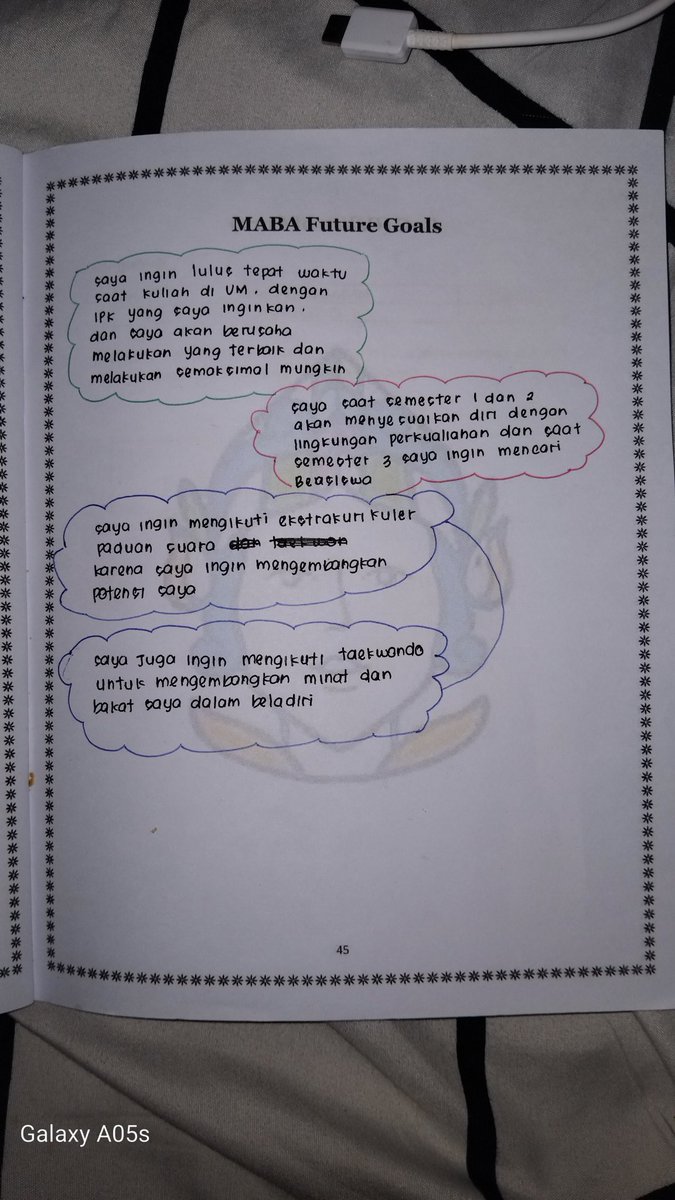 MABA Future Goals
saya ingin lulus tepat waktu
saat kuliah di UM. dengan
IPK yang saya inginkan.
dan saya akan berusaha
melakukan yang terbaik dan
melakukan semaksimal mungkin
saya saat semester 1 dan 2
akan menyesuaikan diri dengan
lingkungan perkualiahan dan saat
semester 3 saya ingin mencari
Beasiswa
saya ingin mengikuti ekstrakurikuler
paduan suara dan taekwon
karena saya ingin mengembangkan
potensi saya
saya Juga ingin mengikuti taekwondo
untuk mengembangkan minat dan
bakat saya dalam beladiri
45
Galaxy A05s